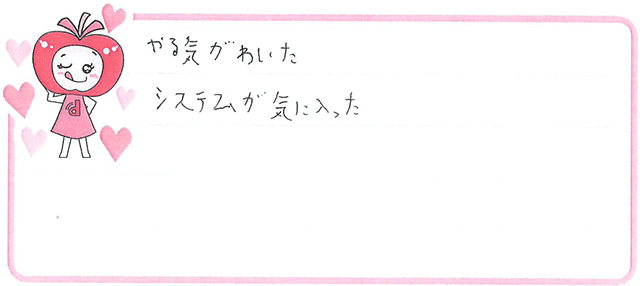 やる気がわいた
システムが気に入った